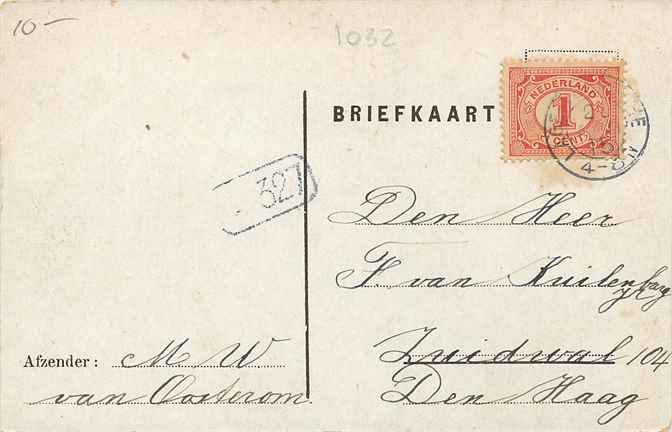 10-
1032
BRIEFKAART
NEDERLAND
1
CENT
4-8 N
327
Den Heer
F. van Kuilenburg
Jr.
Zuidwal 104
Den Haag
Afzender: M W
van Oosterom.